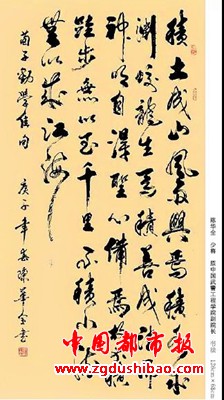 積土成山風雨興焉積水成
渊蛟龍生焉積善成德而
神明自得聖心備焉故不積
跬步無以至千里不積小流
無以成江海
荀子勸學佳句 庚子年冬陳華全書
陈华全 少将 原中国武警工程学院副院长
书法
中国都市报
www.zgdushibao.com